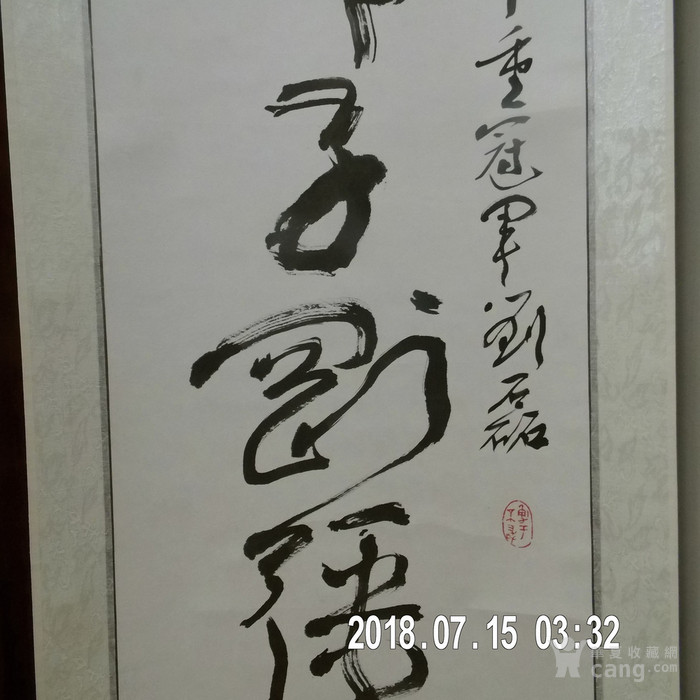 重冠軍劉磊
子剛強
2018.07.15 03:32
華夏收藏網
cang.com